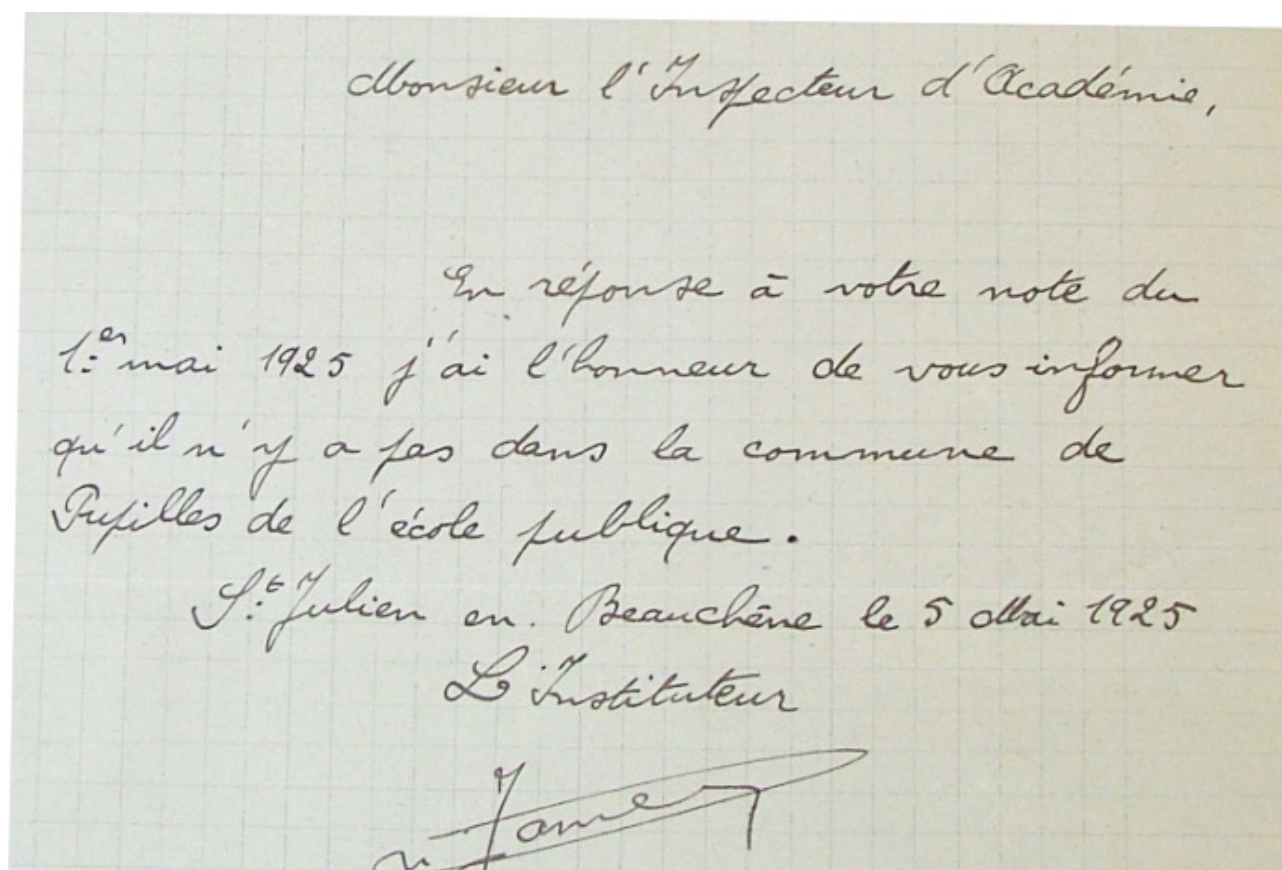 Monsieur l'Inspecteur d'Académie,
En réponse à votre note du
1er mai 1925 j'ai l'honneur de vous informer
qu'il n'y a pas dans la commune de
Pupilles de l'école publique.
St Julien en. Beauchêne le 5 Mai 1925
L'Instituteur